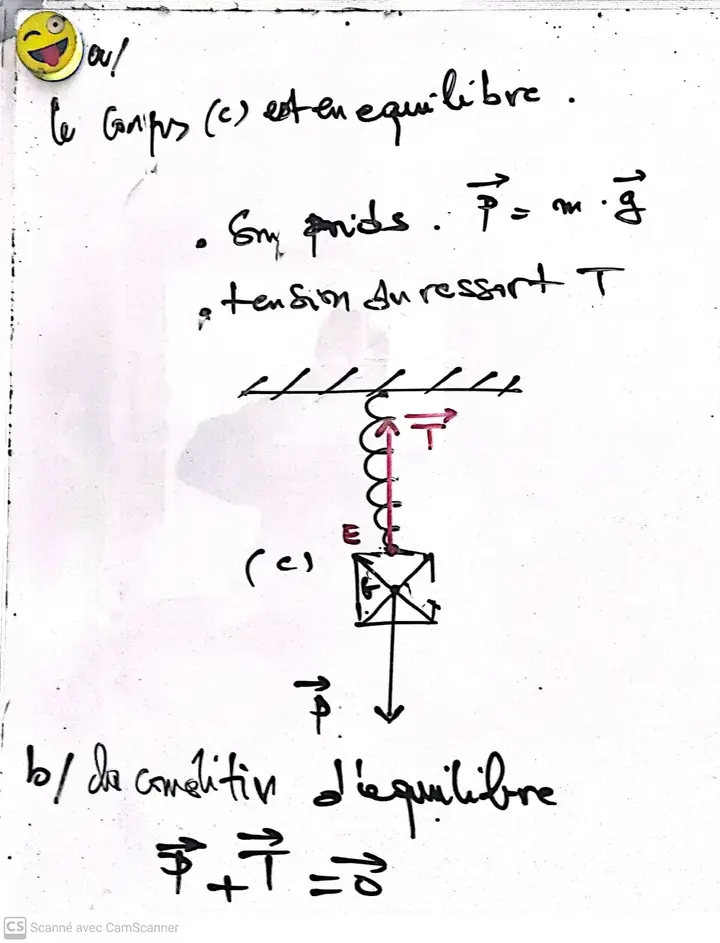 a/
le corps (c) est en equilibre .
. Son poids . P⃗ = m . g⃗
. tension du ressort T
T⃗
E
(c)
G
P⃗
b/ la condition d'equilibre
P⃗ + T⃗ = 0⃗
CS Scanné avec CamScanner